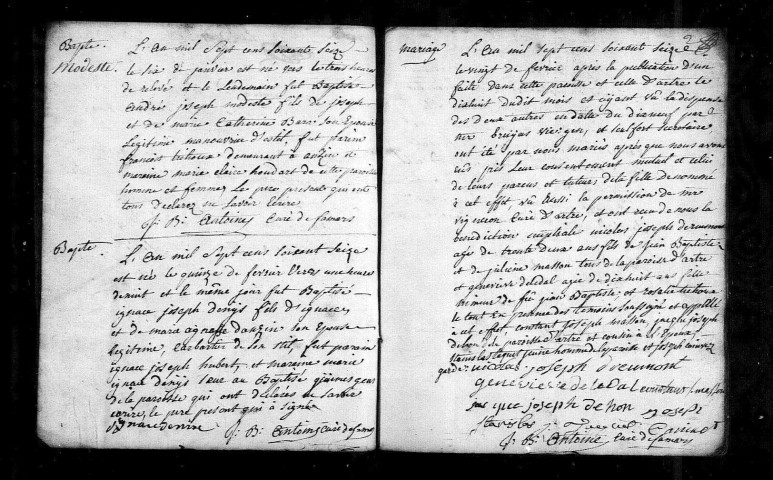 Bapte.
Modeste.
L'An mil Sept cens Soixante Seize
le six de janvier est né vers le trois heures
de relevé et le Lendemain fut Baptisé
André joseph modeste fils de joseph
et de marie Catherine Bar Son Epouse
Legitime manouvrier d'estil, fut parin
francois demeurant à anzin et
maraine marie claire houdart de cette paroisse
homme et femme. Le pere present qui ont
tous declarez ne Savoir Ecrire
J: B: Antoine Curé de famars
Bapte.
L'An mil Sept cens Soixant Seize
est né le quinze de fevrier Vers une heures
de nuit et le même jour fut Baptisé
ignace joseph fils d'ignace,
et de marie Son Epouse
legitime, de Son Stil, fut parain
ignace joseph hubert, et maraine marie
au Baptisé
de la paroisse qui ont declarés ne Savoir
ecrire, le pere present qui a Signé
J: B: Antoine Curé de famars
mariage
L'An mil Sept cens Soixante Seize
le vingt de fevrier après la publication d'un
faite dans cette paroisse et celle d'artre le
dixhuit dudit mois et ayant vû la dispense
des deux autres en datte du dixneuf par
mr vic: gen, et Secretaire,
ont été par nous mariés après que nous avons
pris Leur consentement mutuel et celui
de leurs parens et tuteur de la fille denommé
à cet effet vû aussi la permission de mr
vigneron Curé D'artre, et ont reçu de nous la
benediction nuptiale nicolas joseph
agé de trente deux ans fils de jean Baptiste
et de julienne masson tous de la paroisse d'artre
et genevieve deledal agée de dixhuit ans fille
mineure de feu jean Baptiste, et rosalie
le tout En presence des temoins Soussignés et appellé
à cet effet constant joseph masson, jacque joseph
dehon, de la paroisse d'artre et cousin à l'Epoux,
Stanislas jeune homme de la paroisse et joseph
garde nicolas joseph dreumont
genevieve deledal constant masson
jacque joseph dehon joseph
Stanislas
J: B: Antoine Curé de famars